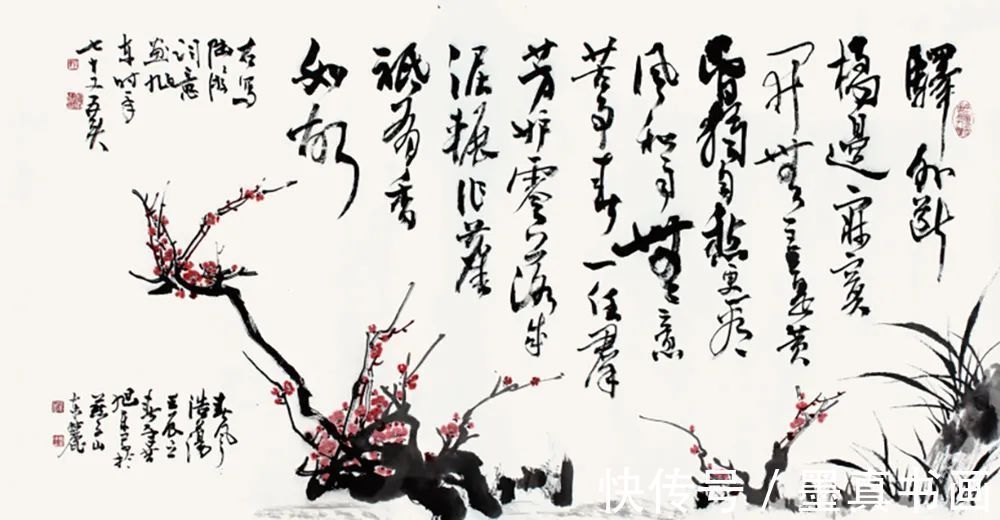 驛外斷
橋邊寂寞
開無主已是黃
昏獨自愁更著
風和雨無意
苦爭春一任群
芳妒零落成
泥碾作塵
祇有香
如故
右寫
陸游
詞意
七十又五矣
春風
浩蕩
壬辰之
快传号 / 墨真书画